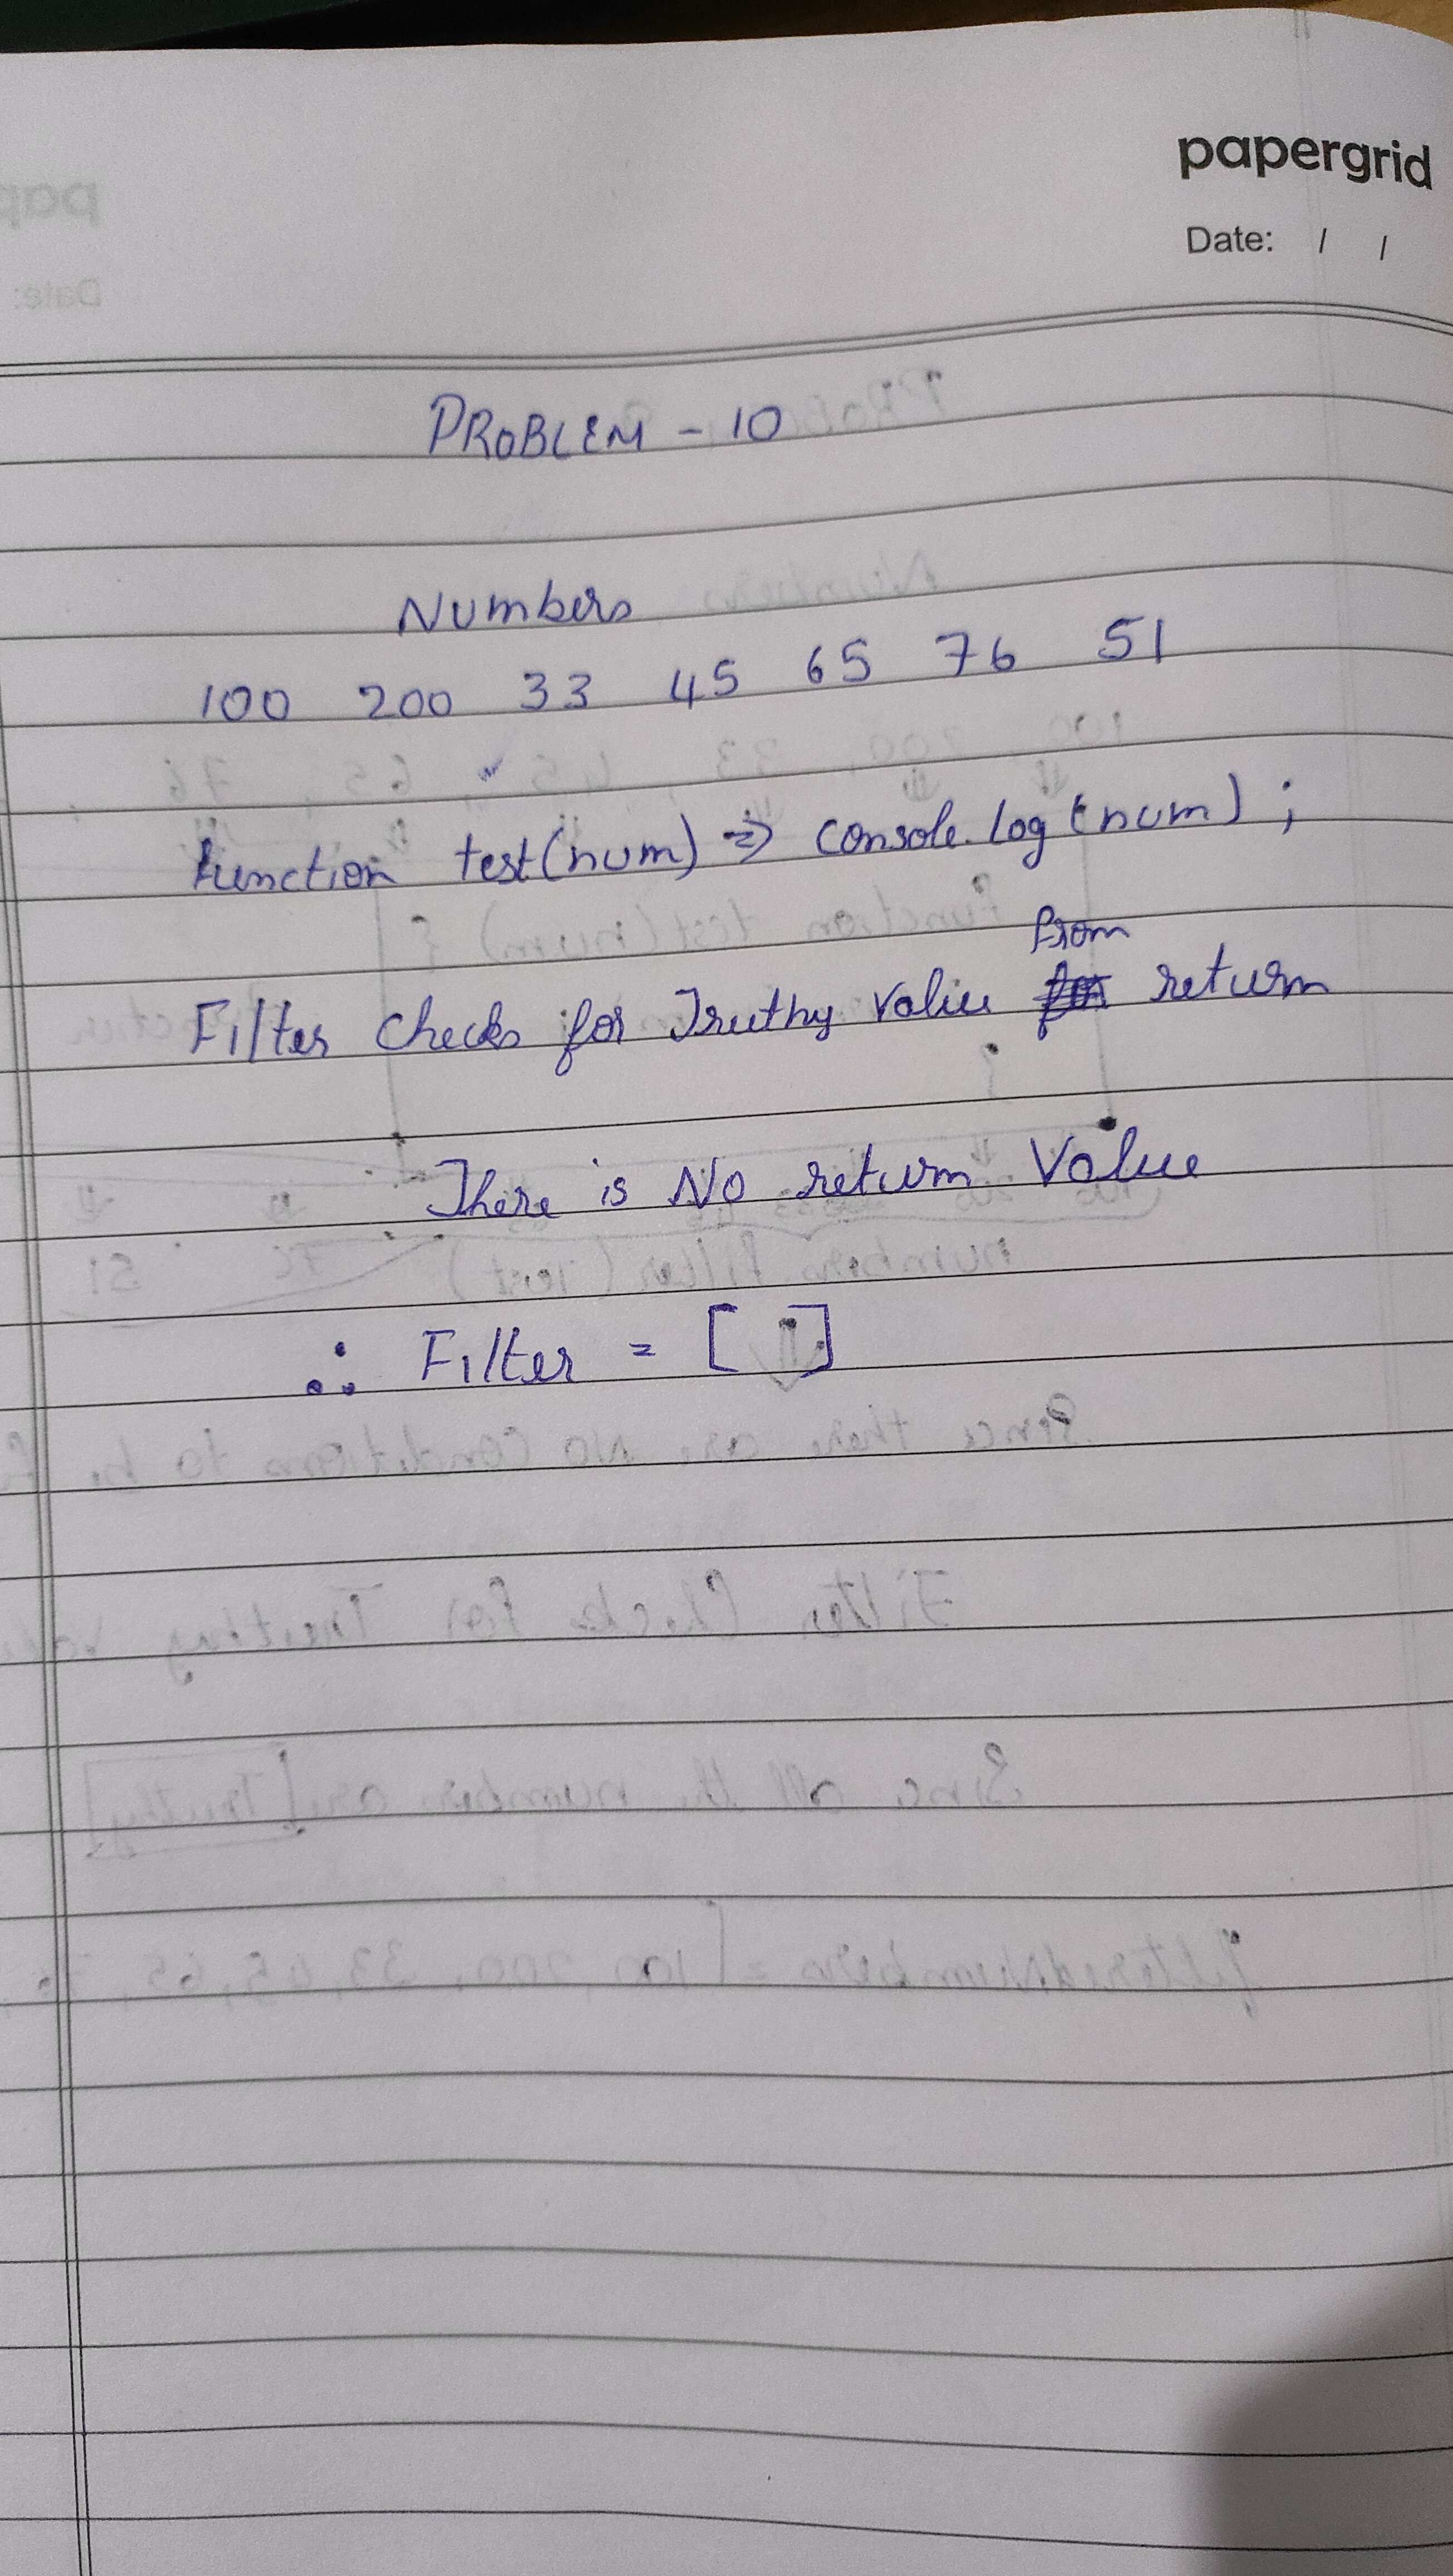 papergrid
Date: / /
PROBLEM - 10
Numbers
100 200 33 45 65 76 51
function test(num) => console.log(num);
from
Filter checks for Truthy Value return
There is No return Value
∴ Filter = [ ]